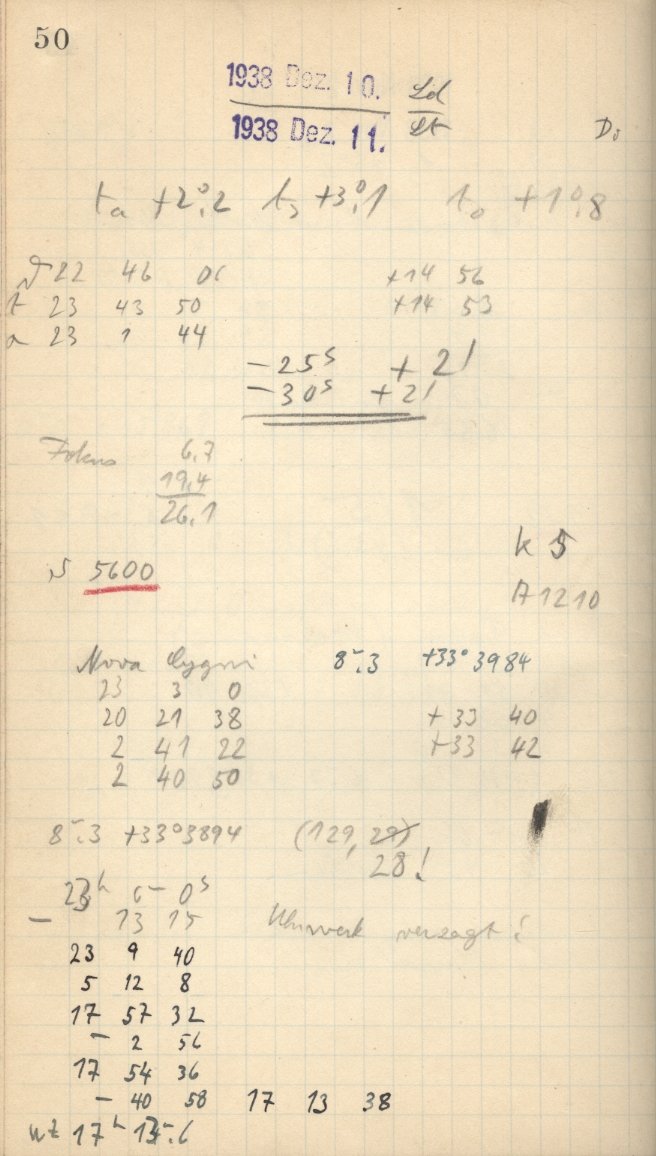 50
1938 Dez. 10. Ld
1938 Dez. 11. Lt
ta +2°,2 ts +3°,1 to +1°,8
22 46 06 +14 56
t 23 43 50 +14 53
a 23 1 44
-25s +2'
-30s +2'
Fokus 6,7
19,4
26,1
k 5
S 5600
A 1210
Nova Cygni 8m.3 +33°3984
23 3 0
20 21 38 +33 40
2 41 22 +33 42
2 40 50
8m.3 +33°3894 (129, 29)
28!
23h 6m 0s
- 13 15 Uhrwerk versagt!
23 9 40
5 12 8
17 57 32
- 2 56
17 54 36
- 40 58 17 13 38
WZ 17h 13m.6